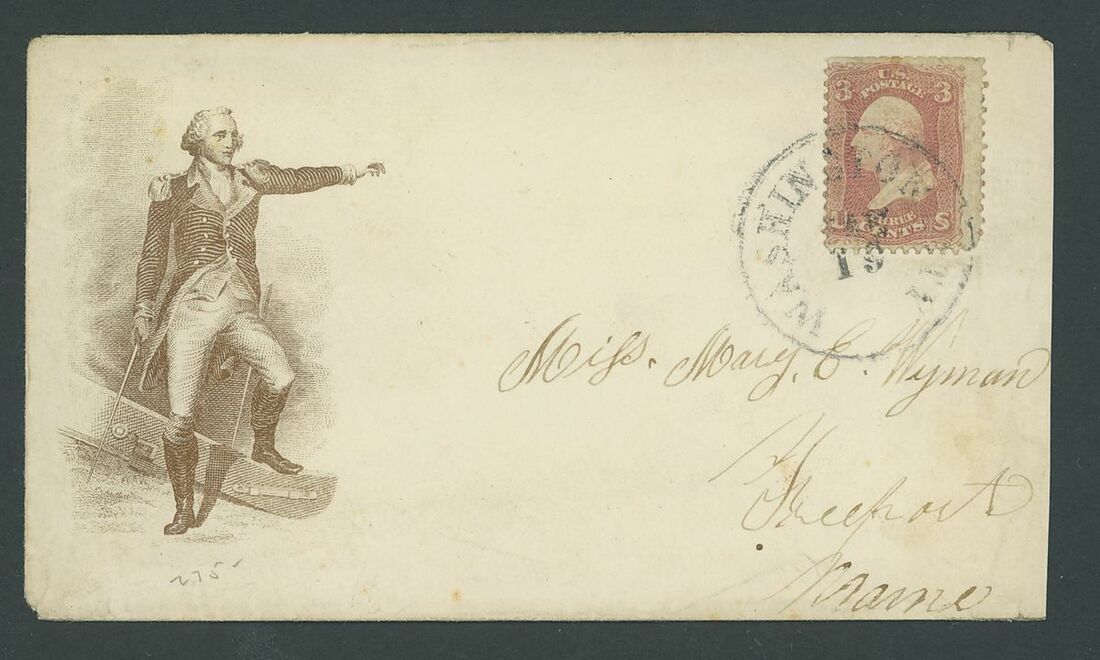 U.S.
POSTAGE
3 3
THREE
CENTS
WASHINGTON
19
Miss. Mary. C. Wyman
Freeport
Maine
275